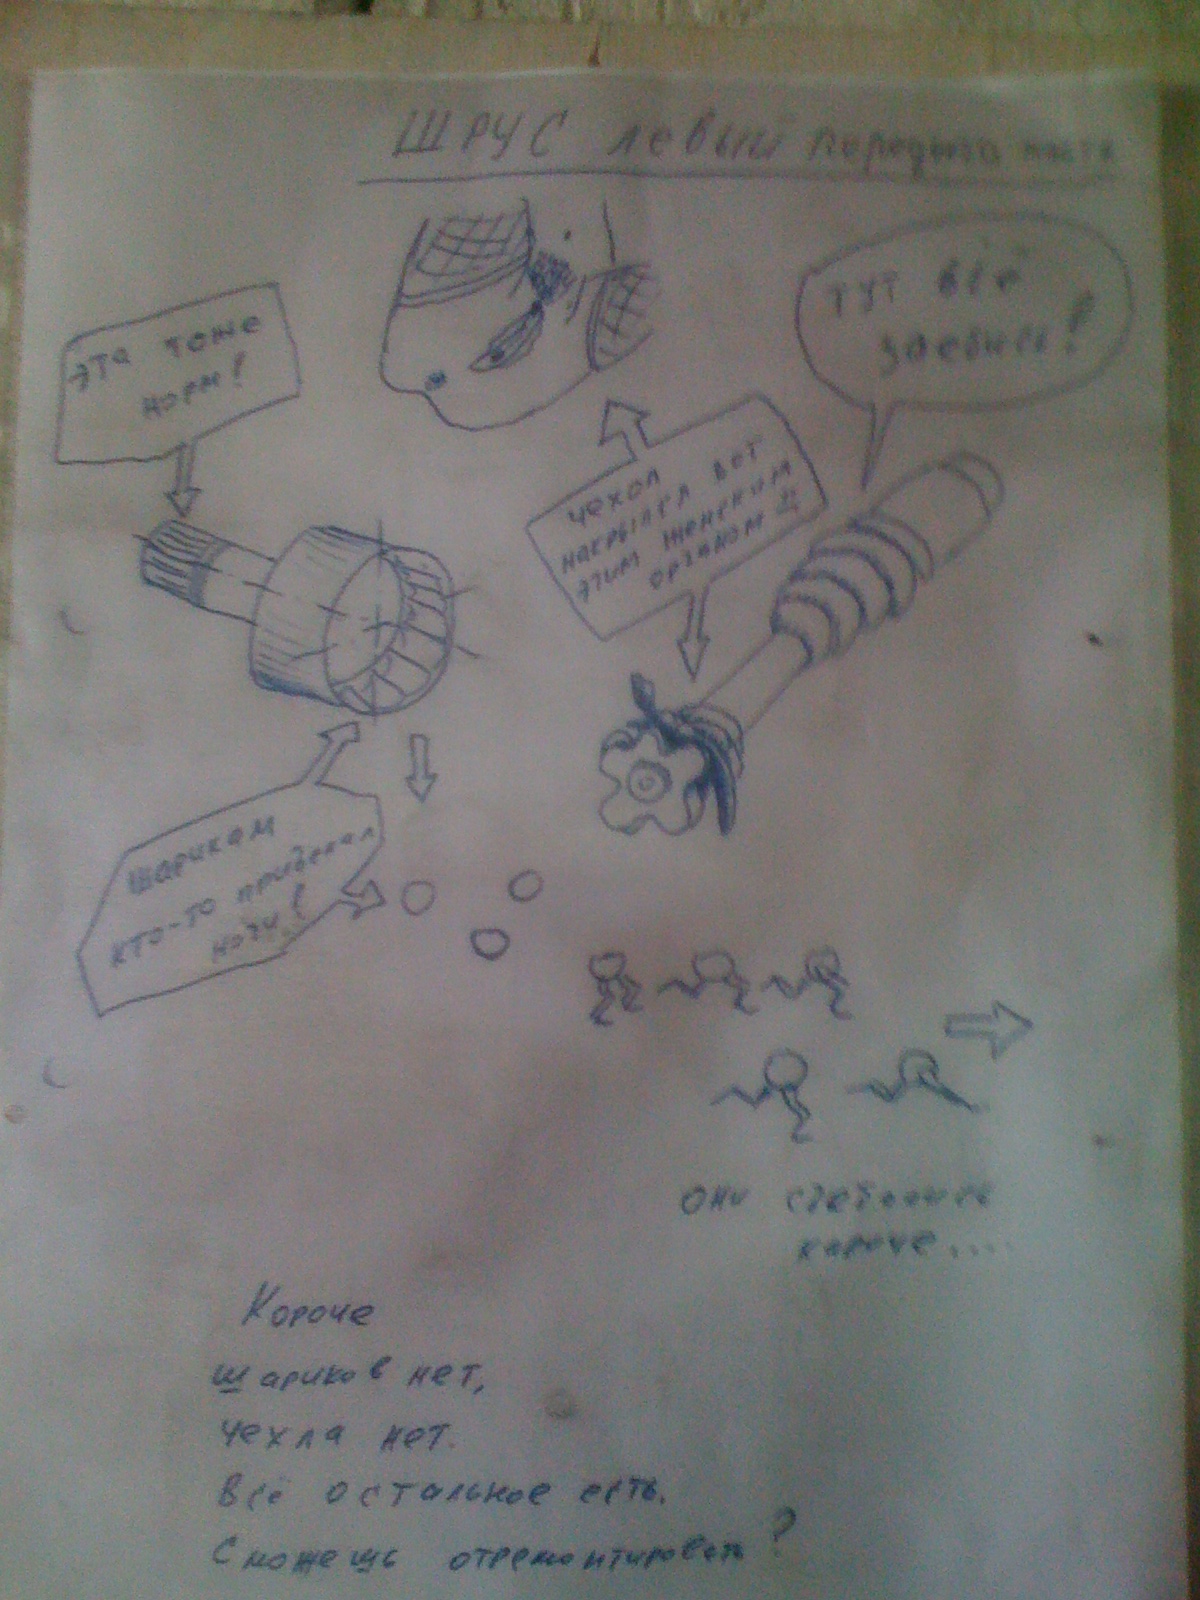 ШРУС левый переднего моста
Эта тоже
норм!
Тут всё
заебись!
Чехол
накрылся вот
этим женским
органом
Шарикам
кто-то приделал
ноги!
Они съебались
короче....
Короче
шариков нет,
чехла нет.
Всё остальное есть.
Сможешь отремонтировать?